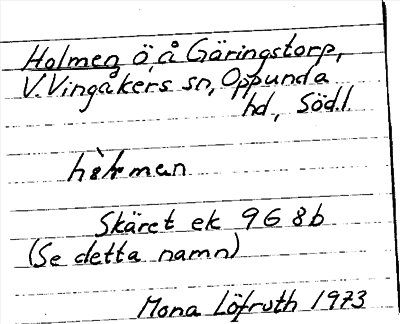 Holmen ö å Gäringstorp,
V. Vingåkers sn, Oppunda
hd, Södl.
Skäret ek 9G 8b
(Se detta namn)
Mona Löfruth 1973